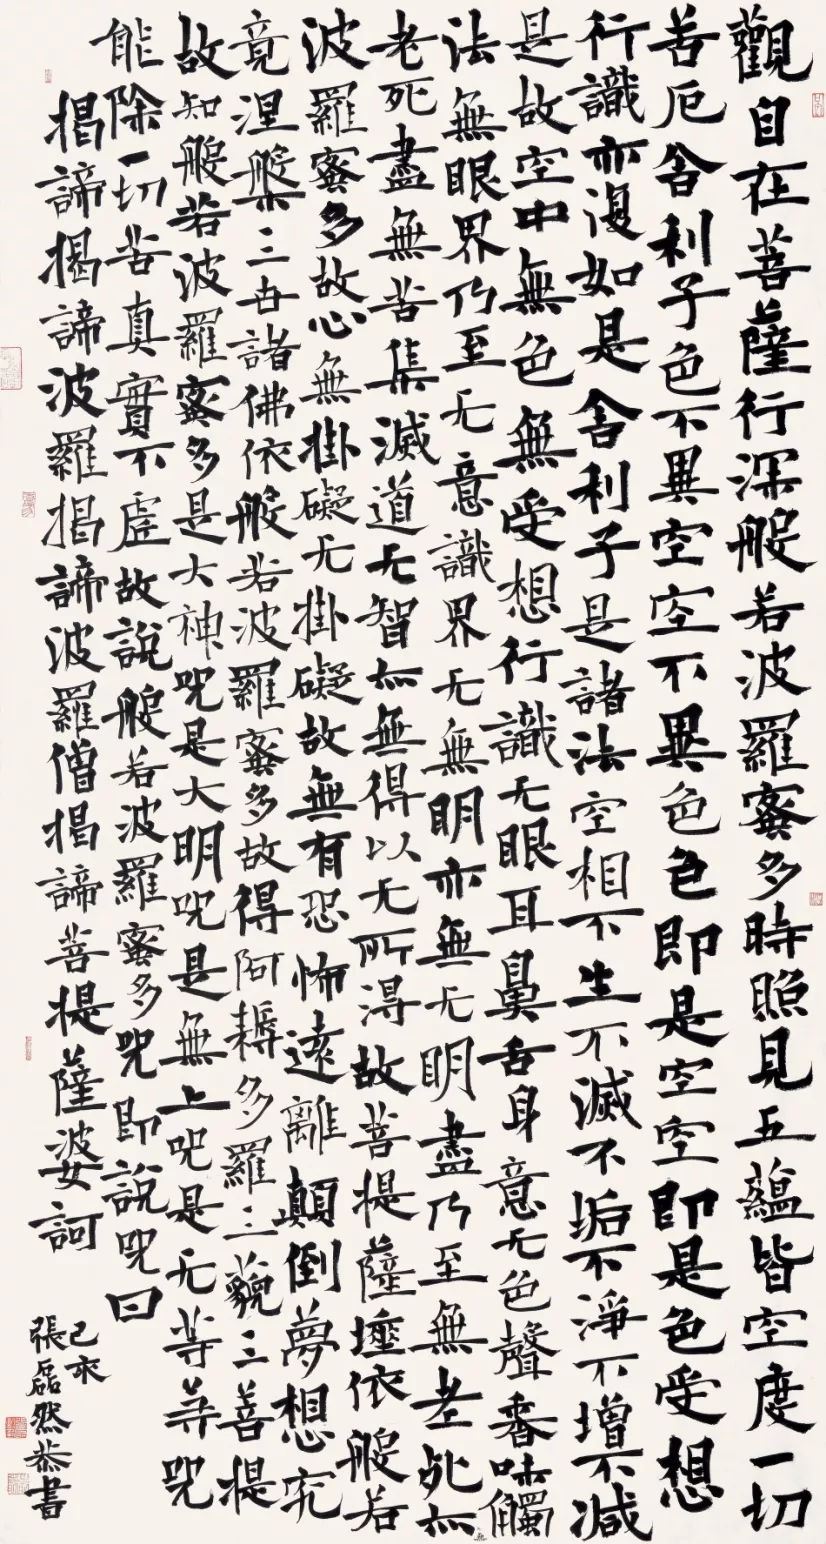 觀自在菩薩行深般若波羅蜜多時照見五蘊皆空度一切
苦厄舍利子色不異空空不異色色即是空空即是色受想
行識亦復如是舍利子是諸法空相不生不滅不垢不淨不增不減
是故空中無色無受想行識无眼耳鼻舌身意无色聲香味觸
法無眼界乃至无意識界无無明亦無无明盡乃至無老死亦無
老死盡無苦集滅道无智亦無得以无所得故菩提薩埵依般若
波羅蜜多故心無掛礙无掛礙故無有恐怖遠離顛倒夢想究
竟涅槃三世諸佛依般若波羅蜜多故得阿耨多羅三藐三菩提
故知般若波羅蜜多是大神咒是大明咒是無上咒是无等等咒
能除一切苦真實不虛故說般若波羅蜜多咒即說咒曰
揭諦揭諦波羅揭諦波羅僧揭諦菩提薩婆訶
己亥
張磊然恭書